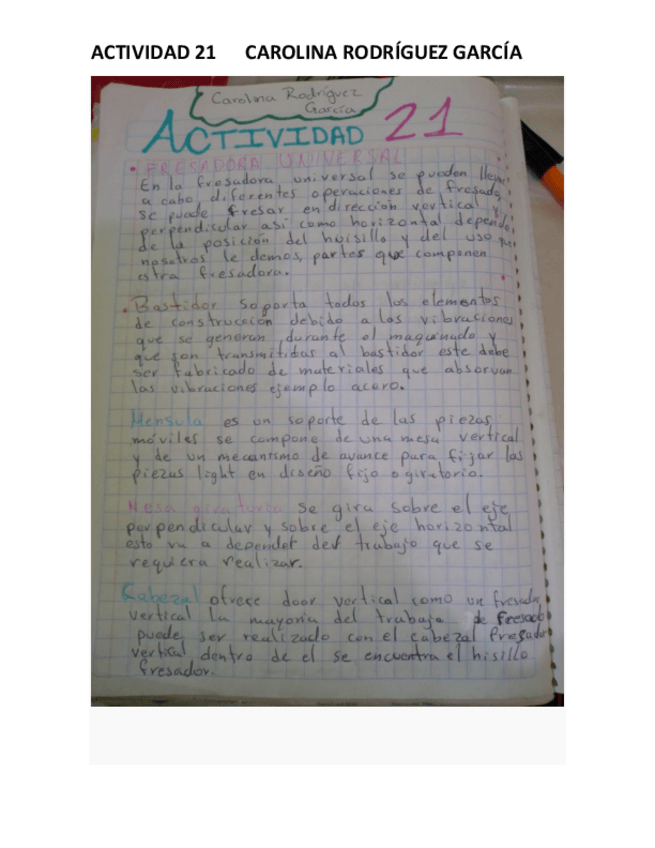 ACTIVIDAD 21 CAROLINA RODRÍGUEZ GARCÍA
Carolina Rodríguez
García
ACTIVIDAD 21
• FRESADORA UNIVERSAL
En la fresadora universal se pueden llevar
a cabo diferentes operaciones de fresado,
se puede fresar en dirección vertical y
perpendicular asi como horizontal depende
de la posición del huisillo y del uso que
nosotros le demos, partes que componen
estra fresadora.
• Bastidor soporta todos los elementos
de construcción debido a las vibraciones
que se generan durante el maquinado y
que son transmitidas al bastidor este debe
ser fabricado de materiales que absorvan
las vibraciones ejemplo acero.
Mensula es un soporte de las piezas
móviles se compone de una mesa vertical
y de un mecanismo de avance para fijar las
piezas light en diseño fijo o giratorio.
Mesa giratoria se gira sobre el eje
perpendicular y sobre el eje horizontal
esto va a depender del trabajo que se
requiera realizar.
Cabezal ofrece door vertical como un fresador
vertical la mayoria del trabajo de fresado
puede ser realizado con el cabezal fresador
vertical dentro de el se encuentra el hisillo
fresador.